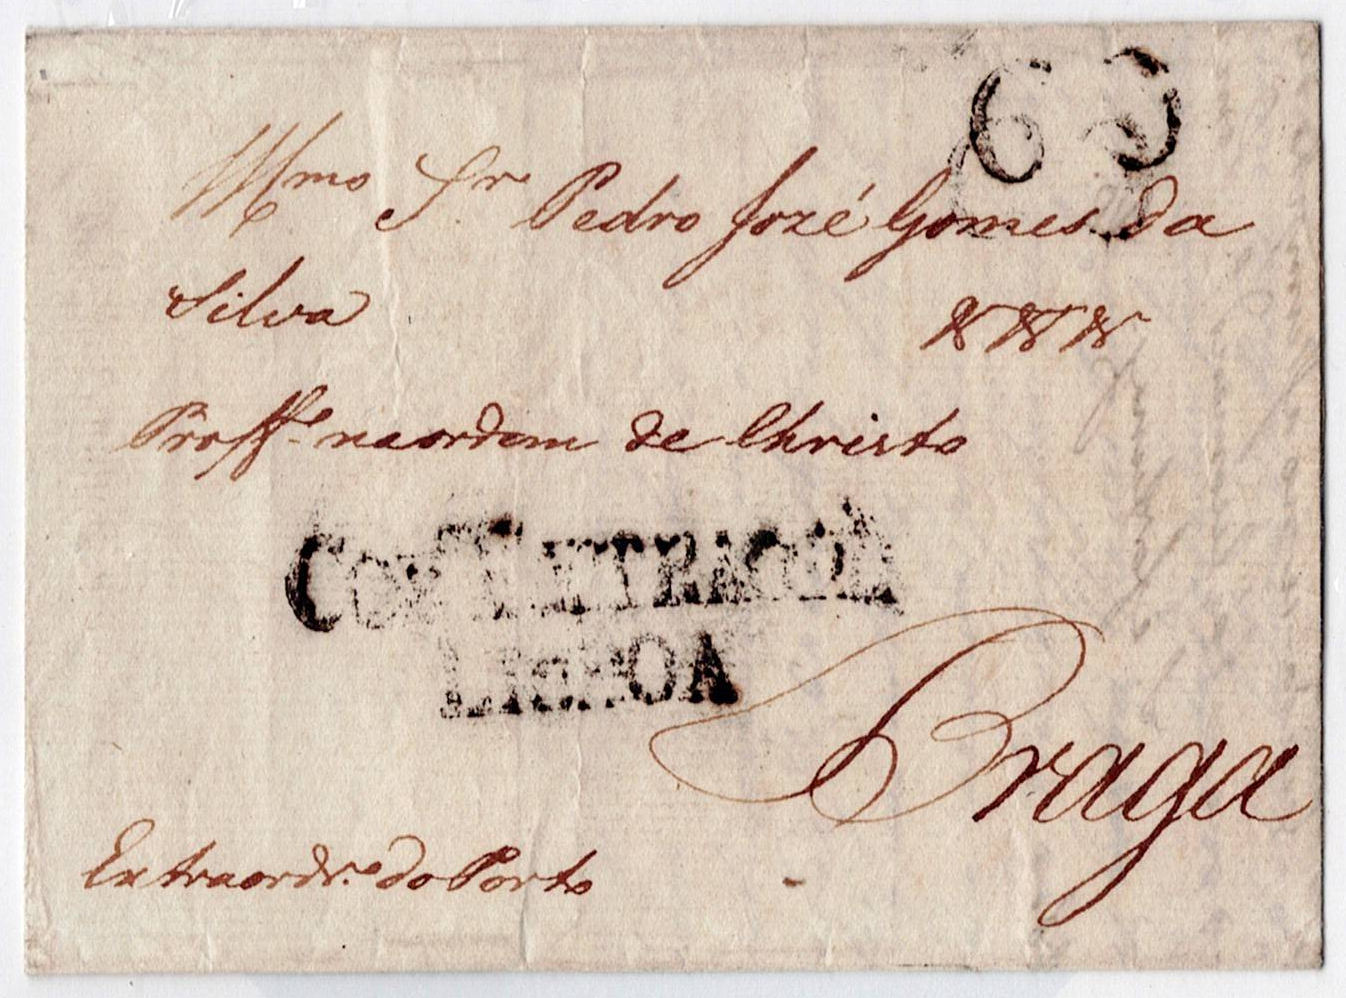 60
Illmo Sr. Pedro Jozé Gomes da
Silva
Proffo. na ordem de Christo
LISBOA
Braga
Extraordro. do Porto